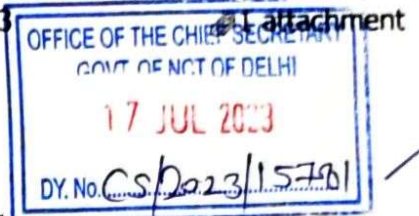 3 1 attachment
OFFICE OF THE CHIEF SECRETARY
GOVT OF NCT OF DELHI
17 JUL 2023
DY. No. CS/2023/15781